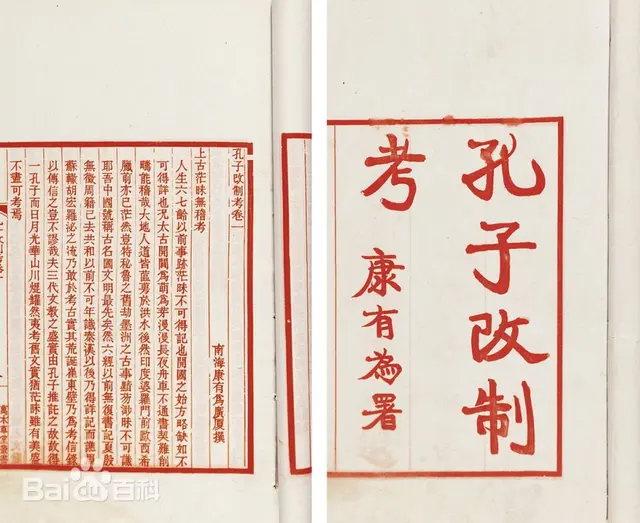 孔子改制
考
康有為署
孔子改制考卷一
南海康有為廣廈撰
上古茫昧無稽考
人生六七齡以前事跡茫昧不可得記也開國之始方略缺如不
可得詳也況太古開闢為萌為芽漫漫長夜舟車不通書契難創
疇能稽哉大地人道皆於洪水後然印度婆羅門前歐西希
臘前亦已茫然豈特秘魯之舊劫墨洲之古事黯芴渺昧不可識
耶吾中國號稱古名國文明最先矣然六經以前無復書記夏殷
無徵周籍已去共和以前不可年識秦漢以後乃得詳記而譙周
蘇轍胡宏羅泌之流乃敢於考古實其荒誕崔東壁乃為考信錄
以傳信之豈不謬哉夫三代文教之盛實由孔子推託之故故得
一孔子而日月光華山川焜燿然夷考舊文實猶茫昧雖有美盛
不盡可考焉
萬木草堂叢書
Bai百科